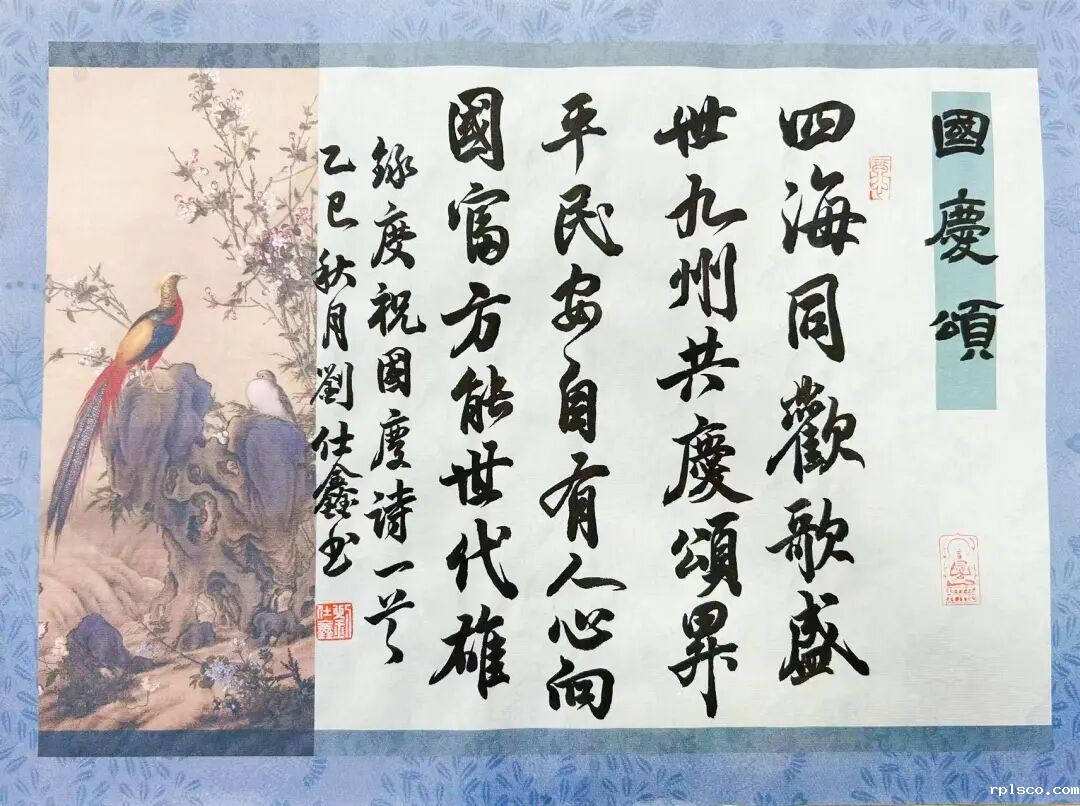 國慶頌
四海同歡歌盛
世九州共慶頌昇
平民安自有人心向
國富方能世代雄
錄度祝國慶詩一首
乙巳秋月劉仕鑫书
劉仕鑫
rplsco.com